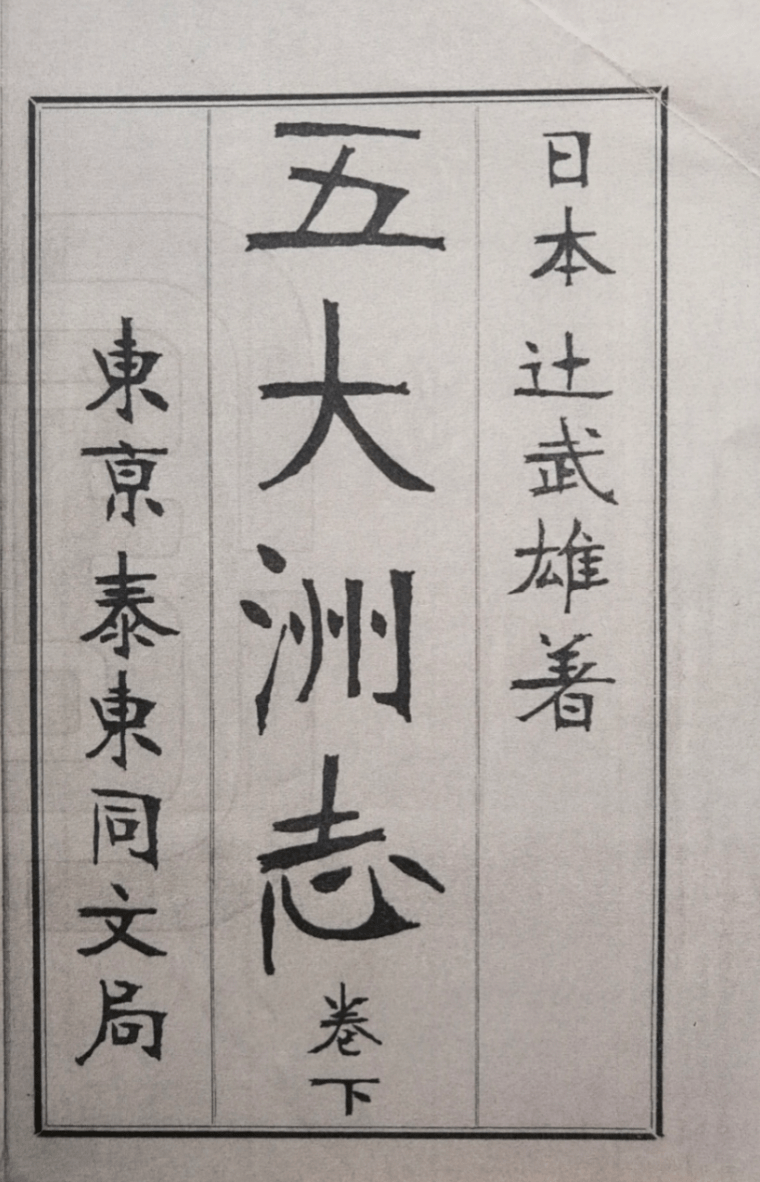 日本 辻武雄著
五大洲志 卷下
東京泰東同文局